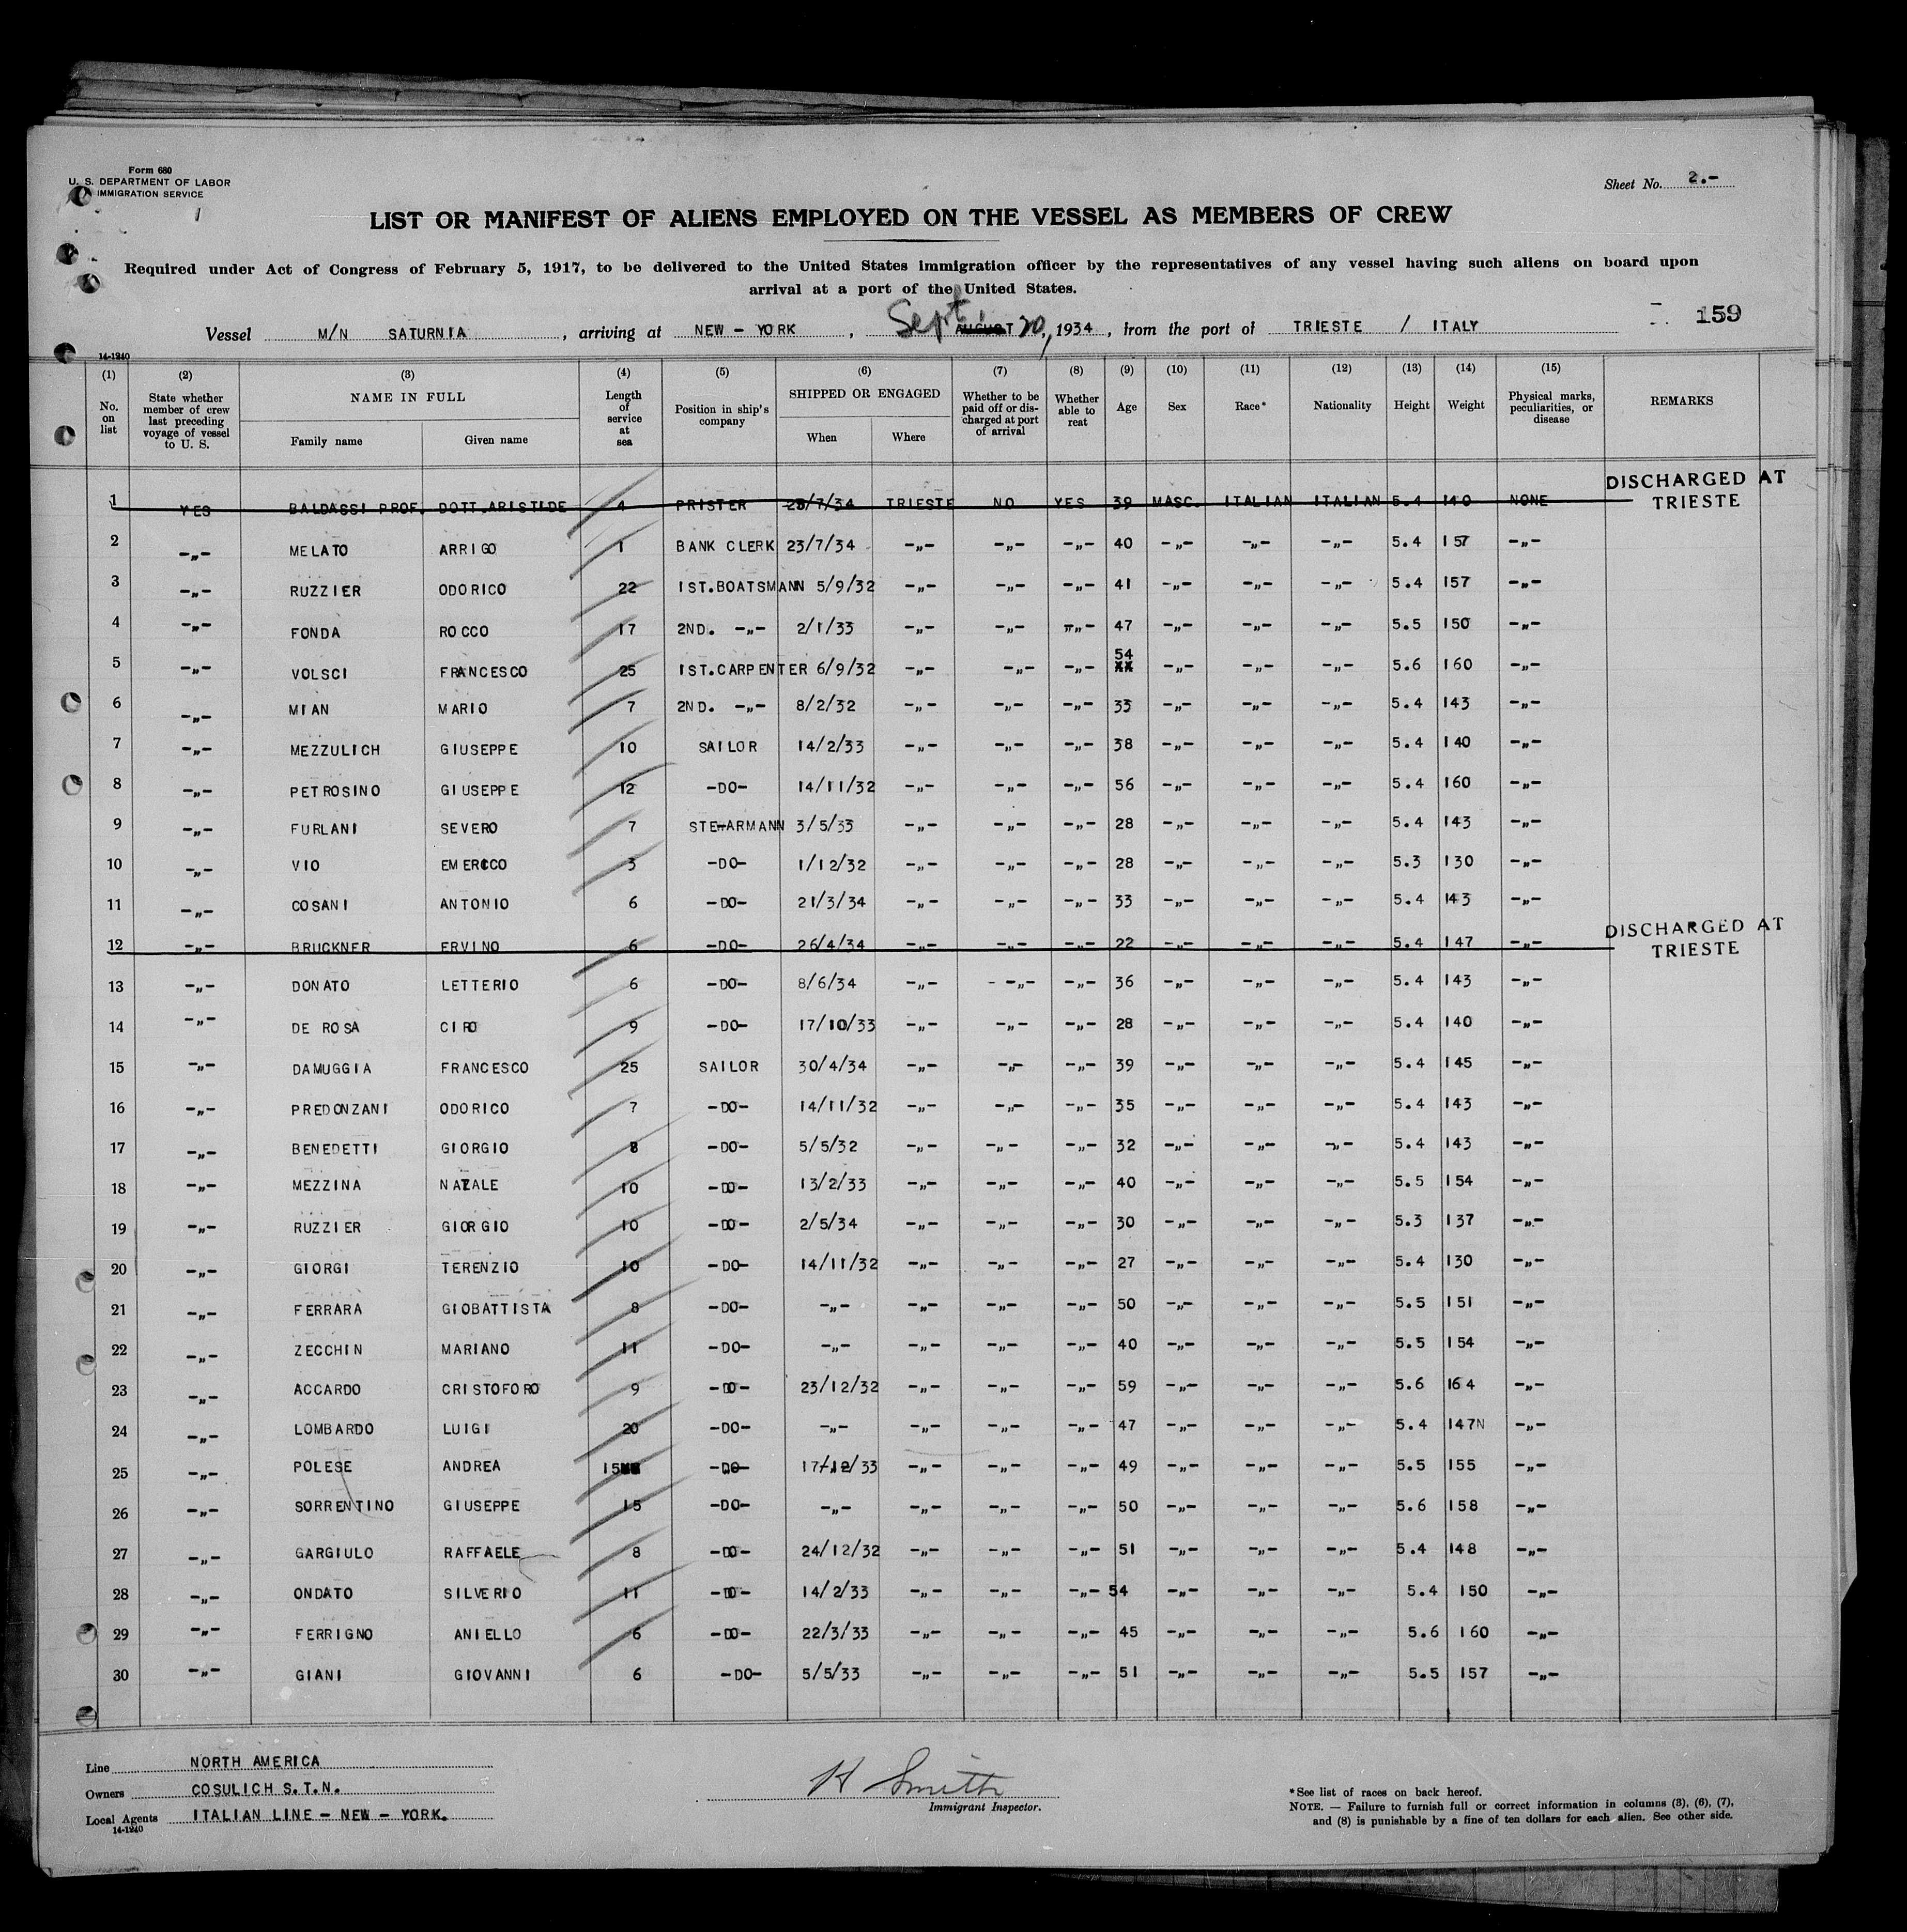 Form 680
U. S. DEPARTMENT OF LABOR
IMMIGRATION SERVICE
Sheet No. 2.-
LIST OR MANIFEST OF ALIENS EMPLOYED ON THE VESSEL AS MEMBERS OF CREW
Required under Act of Congress of February 5, 1917, to be delivered to the United States immigration officer by the representatives of any vessel having such aliens on board upon
arrival at a port of the United States.
159
Vessel M/N SATURNIA , arriving at NEW - YORK , Sept AUGUST 20, 1934 , from the port of TRIESTE / ITALY
14-1240
(1) (2) (3) (4) (5) (6) (7) (8) (9) (10) (11) (12) (13) (14) (15)
No. on list State whether member of crew last preceding voyage of vessel to U. S. NAME IN FULL Family name Given name Length of service at sea Position in ship's company SHIPPED OR ENGAGED When Where Whether to be paid off or discharged at port of arrival Whether able to reat Age Sex Race* Nationality Height Weight Physical marks, peculiarities, or disease REMARKS
1 YES BALDASSI PROF. DOTT.ARISTIDE 4 PRISTER 23/7/34 TRIESTE NO YES 39 MASC. ITALIAN ITALIAN 5.4 140 NONE DISCHARGED AT TRIESTE
2 -„- MELATO ARRIGO 1 BANK CLERK 23/7/34 -„- -„- -„- 40 -„- -„- -„- 5.4 157 -„-
3 -„- RUZZIER ODORICO 22 1ST.BOATSMANN 5/9/32 -„- -„- -„- 41 -„- -„- -„- 5.4 157 -„-
4 -„- FONDA ROCCO 17 2ND. -„- 2/1/33 -„- -„- -„- 47 -„- -„- -„- 5.5 150 -„-
5 -„- VOLSCI FRANCESCO 25 1ST.CARPENTER 6/9/32 -„- -„- -„- 54 XX -„- -„- -„- 5.6 160 -„-
6 -„- MIAN MARIO 7 2ND. -„- 8/2/32 -„- -„- -„- 33 -„- -„- -„- 5.4 143 -„-
7 -„- MEZZULICH GIUSEPPE 10 SAILOR 14/2/33 -„- -„- -„- 38 -„- -„- -„- 5.4 140 -„-
8 -„- PETROSINO GIUSEPPE 12 -DO- 14/11/32 -„- -„- -„- 56 -„- -„- -„- 5.4 160 -„-
9 -„- FURLANI SEVERO 7 STE-ARMANN 3/5/33 -„- -„- -„- 28 -„- -„- -„- 5.4 143 -„-
10 -„- VIO EMERICO 3 -DO- 1/12/32 -„- -„- -„- 28 -„- -„- -„- 5.3 130 -„-
11 -„- COSANI ANTONIO 6 -DO- 21/3/34 -„- -„- -„- 33 -„- -„- -„- 5.4 143 -„-
12 -„- BRUCKNER ERVINO 6 -DO- 26/4/34 -„- -„- -„- 22 -„- -„- -„- 5.4 147 -„- DISCHARGED AT TRIESTE
13 -„- DONATO LETTERIO 6 -DO- 8/6/34 -„- - -„- -„- 36 -„- -„- -„- 5.4 143 -„-
14 -„- DE ROSA CIRO 9 -DO- 17/10/33 -„- -„- -„- 28 -„- -„- -„- 5.4 140 -„-
15 -„- DAMUGGIA FRANCESCO 25 SAILOR 30/4/34 -„- -„- -„- 39 -„- -„- -„- 5.4 145 -„-
16 -„- PREDONZANI ODORICO 7 -DO- 14/11/32 -„- -„- -„- 35 -„- -„- -„- 5.4 143 -„-
17 -„- BENEDETTI GIORGIO 8 -DO- 5/5/32 -„- -„- -„- 32 -„- -„- -„- 5.4 143 -„-
18 -„- MEZZINA NATALE 10 -DO- 13/2/33 -„- -„- -„- 40 -„- -„- -„- 5.5 154 -„-
19 -„- RUZZIER GIORGIO 10 -DO- 2/5/34 -„- -„- -„- 30 -„- -„- -„- 5.3 137 -„-
20 -„- GIORGI TERENZIO 10 -DO- 14/11/32 -„- -„- -„- 27 -„- -„- -„- 5.4 130 -„-
21 -„- FERRARA GIOBATTISTA 8 -DO- -„- -„- -„- -„- 50 -„- -„- -„- 5.5 151 -„-
22 -„- ZECCHIN MARIANO 11 -DO- -„- -„- -„- -„- 40 -„- -„- -„- 5.5 154 -„-
23 -„- ACCARDO CRISTOFORO 9 -DO- 23/12/32 -„- -„- -„- 59 -„- -„- -„- 5.6 164 -„-
24 -„- LOMBARDO LUIGI 20 -DO- -„- -„- -„- -„- 47 -„- -„- -„- 5.4 147N -„-
25 -„- POLESE ANDREA 15 -DO- 17/12/33 -„- -„- -„- 49 -„- -„- -„- 5.5 155 -„-
26 -„- SORRENTINO GIUSEPPE 15 -DO- -„- -„- -„- -„- 50 -„- -„- -„- 5.6 158 -„-
27 -„- GARGIULO RAFFAELE 8 -DO- 24/12/32 -„- -„- -„- 51 -„- -„- -„- 5.4 148 -„-
28 -„- ONDATO SILVERIO 11 -DO- 14/2/33 -„- -„- -„- 54 -„- -„- -„- 5.4 150 -„-
29 -„- FERRIGNO ANIELLO 6 -DO- 22/3/33 -„- -„- -„- 45 -„- -„- -„- 5.6 160 -„-
30 -„- GIANI GIOVANNI 6 -DO- 5/5/33 -„- -„- -„- 51 -„- -„- -„- 5.5 157 -„-
Line NORTH AMERICA
Owners COSULICH S.T.N.
Local Agents ITALIAN LINE - NEW - YORK.
14-1240
K Smith
Immigrant Inspector.
*See list of races on back hereof.
NOTE. — Failure to furnish full or correct information in columns (3), (6), (7),
and (8) is punishable by a fine of ten dollars for each alien. See other side.